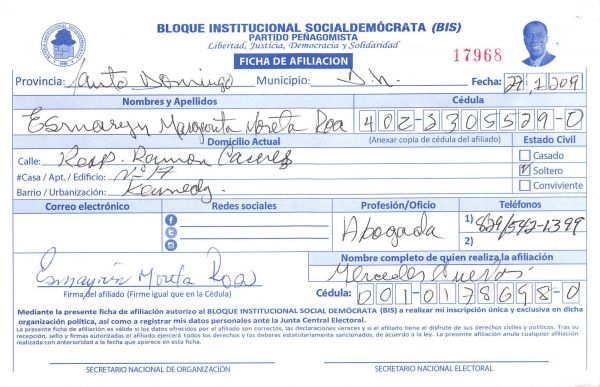 BLOQUE INSTITUCIONAL SOCIALDEMÓCRATA (BIS)
PARTIDO PEÑAGOMISTA
Libertad, Justicia, Democracia y Solidaridad
FICHA DE AFILIACION
17968
Provincia: Santo Domingo Municipio: D.N. Fecha:
Nombres y Apellidos Cédula
Moreta Roa 402-3305529-0
Domicilio Actual (Anexar copia de cédula del afiliado) Estado Civil
Calle: Resp. Ramon Caceres
#Casa / Apt. / Edificio: N-17
Barrio / Urbanización: Kennedy.
Casado
Soltero
Conviviente
Correo electrónico Redes sociales Profesión/Oficio Teléfonos
Abogada
1) 829/542-1399
2)
Moreta Roa
Firma del afiliado (Firme igual que en la Cédula)
Nombre completo de quien realiza la afiliación
Mercedes
Cédula: 001-0178698-0
Mediante la presente ficha de afiliación autorizo al BLOQUE INSTITUCIONAL SOCIAL DEMÓCRATA (BIS) a realizar mi inscripción única y exclusiva en dicha
organización política, así como a registrar mis datos personales ante la Junta Central Electoral.
La presente ficha de afiliación es válida si los datos ofrecidos por el afiliado son correctos, las declaraciones veraces y si el afiliado tiene el disfrute de sus derechos civiles y políticos. Tras su
recepción, sello y firmas autorizadas el afiliado ejercerá todos los derechos y los deberes estatutariamente sancionados, de acuerdo a la ley. La presente afiliación anula cualquier afiliación
realizada con anterioridad a la fecha que aparece en esta ficha.
SECRETARIO NACIONAL DE ORGANIZACIÓN SECRETARIO NACIONAL ELECTORAL